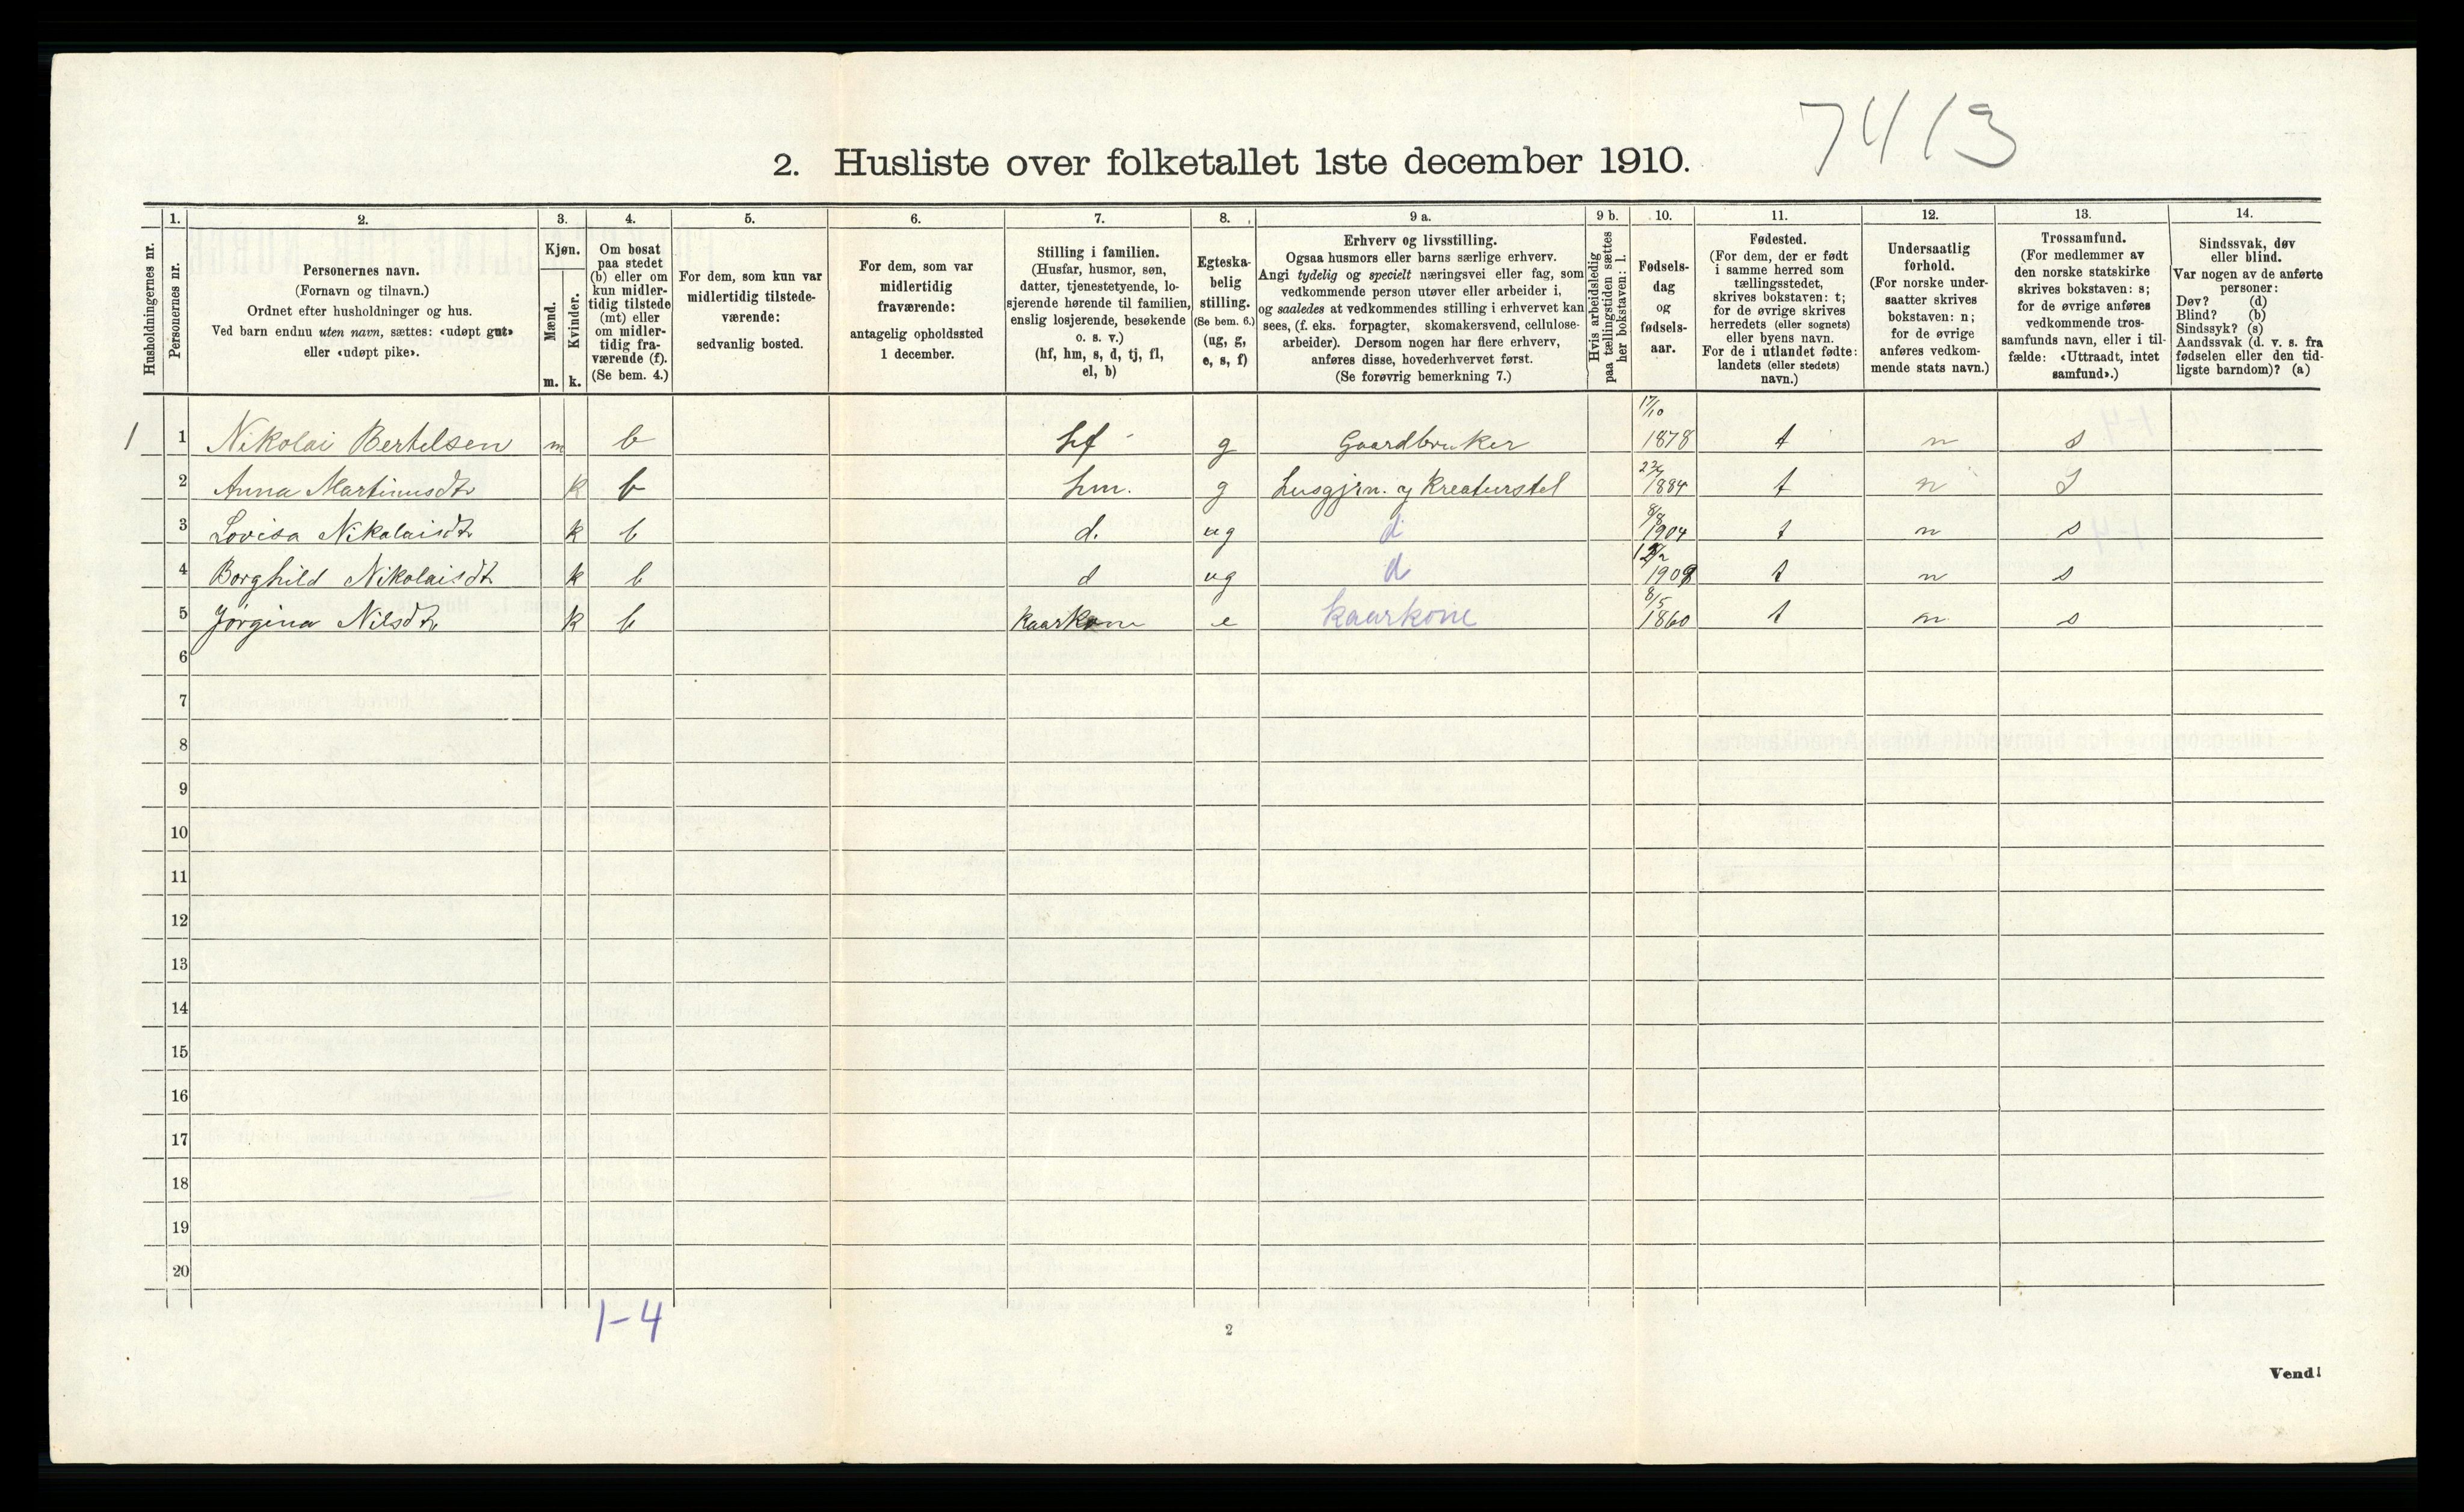 7413
2. Husliste over folketallet 1ste december 1910.
Husholdningernes nr.
1.
Personernes nr.
2.
Personernes navn.
(Fornavn og tilnavn.)
Ordnet efter husholdninger og hus.
Ved barn endnu uten navn, sættes: «udøpt gut»
eller «udøpt pike».
3.
Kjøn.
Mænd.
Kvinder.
m. k.
4.
Om bosat
paa stedet
(b) eller om
kun midler-
tidig tilstede
(mt) eller
om midler-
tidig fra-
værende (f).
(Se bem. 4.)
5.
For dem, som kun var
midlertidig tilstede-
værende:
sedvanlig bosted.
6.
For dem, som var
midlertidig
fraværende:
antagelig opholdssted
1 december.
7.
Stilling i familien.
(Husfar, husmor, søn,
datter, tjenestetyende, lo-
sjerende hørende til familien,
enslig losjerende, besøkende
o. s. v.)
(hf, hm, s, d, tj, fl,
el, b)
8.
Egteska-
belig
stilling.
(Se bem. 6.)
(ug, g,
e, s, f)
9 a.
Erhverv og livsstilling.
Ogsaa husmors eller barns særlige erhverv.
Angi tydelig og specielt næringsvei eller fag, som
vedkommende person utøver eller arbeider i,
og saaledes at vedkommendes stilling i erhvervet kan
sees, (f. eks. forpagter, skomakersvend, cellulose-
arbeider). Dersom nogen har flere erhverv,
anføres disse, hovederhvervet først.
(Se forøvrig bemerkning 7.)
9 b.
Hvis arbeidsledig
paa tællingstiden sættes
her bokstaven: l.
10.
Fødsels-
dag
og
fødsels-
aar.
11.
Fødested.
(For dem, der er født
i samme herred som
tællingsstedet,
skrives bokstaven: t;
for de øvrige skrives
herredets (eller sognets)
eller byens navn.
For de i utlandet fødte:
landets (eller stedets)
navn.)
12.
Undersaatlig
forhold.
(For norske under-
saatter skrives
bokstaven: n;
for de øvrige
anføres vedkom-
mende stats navn.)
13.
Trossamfund.
(For medlemmer av
den norske statskirke
skrives bokstaven: s;
for de øvrige anføres
vedkommende tros-
samfunds navn, eller i til-
fælde: «Uttraadt, intet
samfund».)
14.
Sindssvak, døv
eller blind.
Var nogen av de anførte
personer:
Døv? (d)
Blind? (b)
Sindssyk? (s)
Aandssvak (d. v. s. fra
fødselen eller den tid-
ligste barndom)? (a)
1 1 Nikolai Bertelsen m b hf g Gaardbruker 17/10 1878 t n s
2 Anna Martinusdtr k b hm. g husgjrn. og Kreaturstel 1884 t n S
3 Lovisa Nikolaisdtr k b d. ug d 8/8 1904 t n s
4 Borghild Nikolaisdtr k b d ug d 1909 t n s
5 Jørgina Nilsdtr k b Kaarkone e kaarkone 8/5 1860 t n s
6
7
8
9
10
11
12
13
14
15
16
17
18
19
20
1-4
2
Vend!